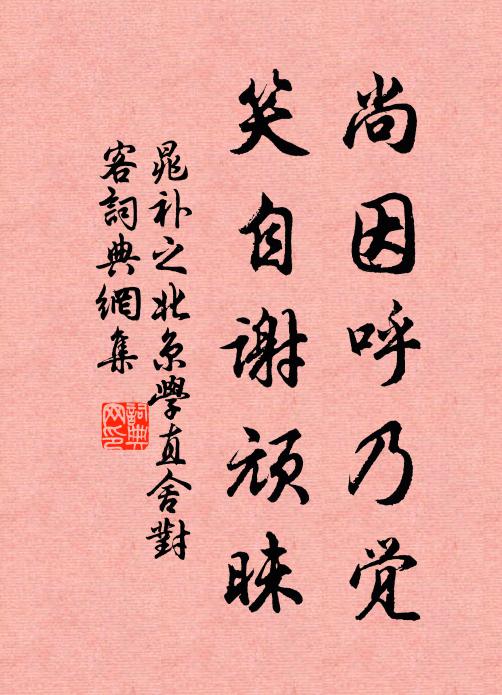 尚因呼乃觉
笑自谢顽昧
晁补之北京學直舍對
客詞典網集
詞典网印